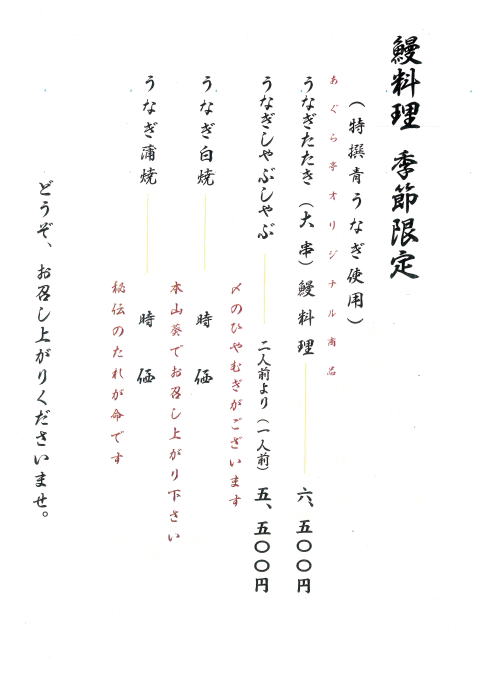 鰻料理 季節限定
(特撰青うなぎ使用)
あぐら亭オリジナル商品
うなぎたたき(大串)鰻料理 六、五〇〇円
うなぎしゃぶしゃぶ 二人前より(一人前) 五、五〇〇円
〆のひやむぎがございます
うなぎ白焼 時価
本山葵でお召し上がり下さい
うなぎ蒲焼 時価
秘伝のたれが命です
どうぞ、お召し上がりくださいませ。